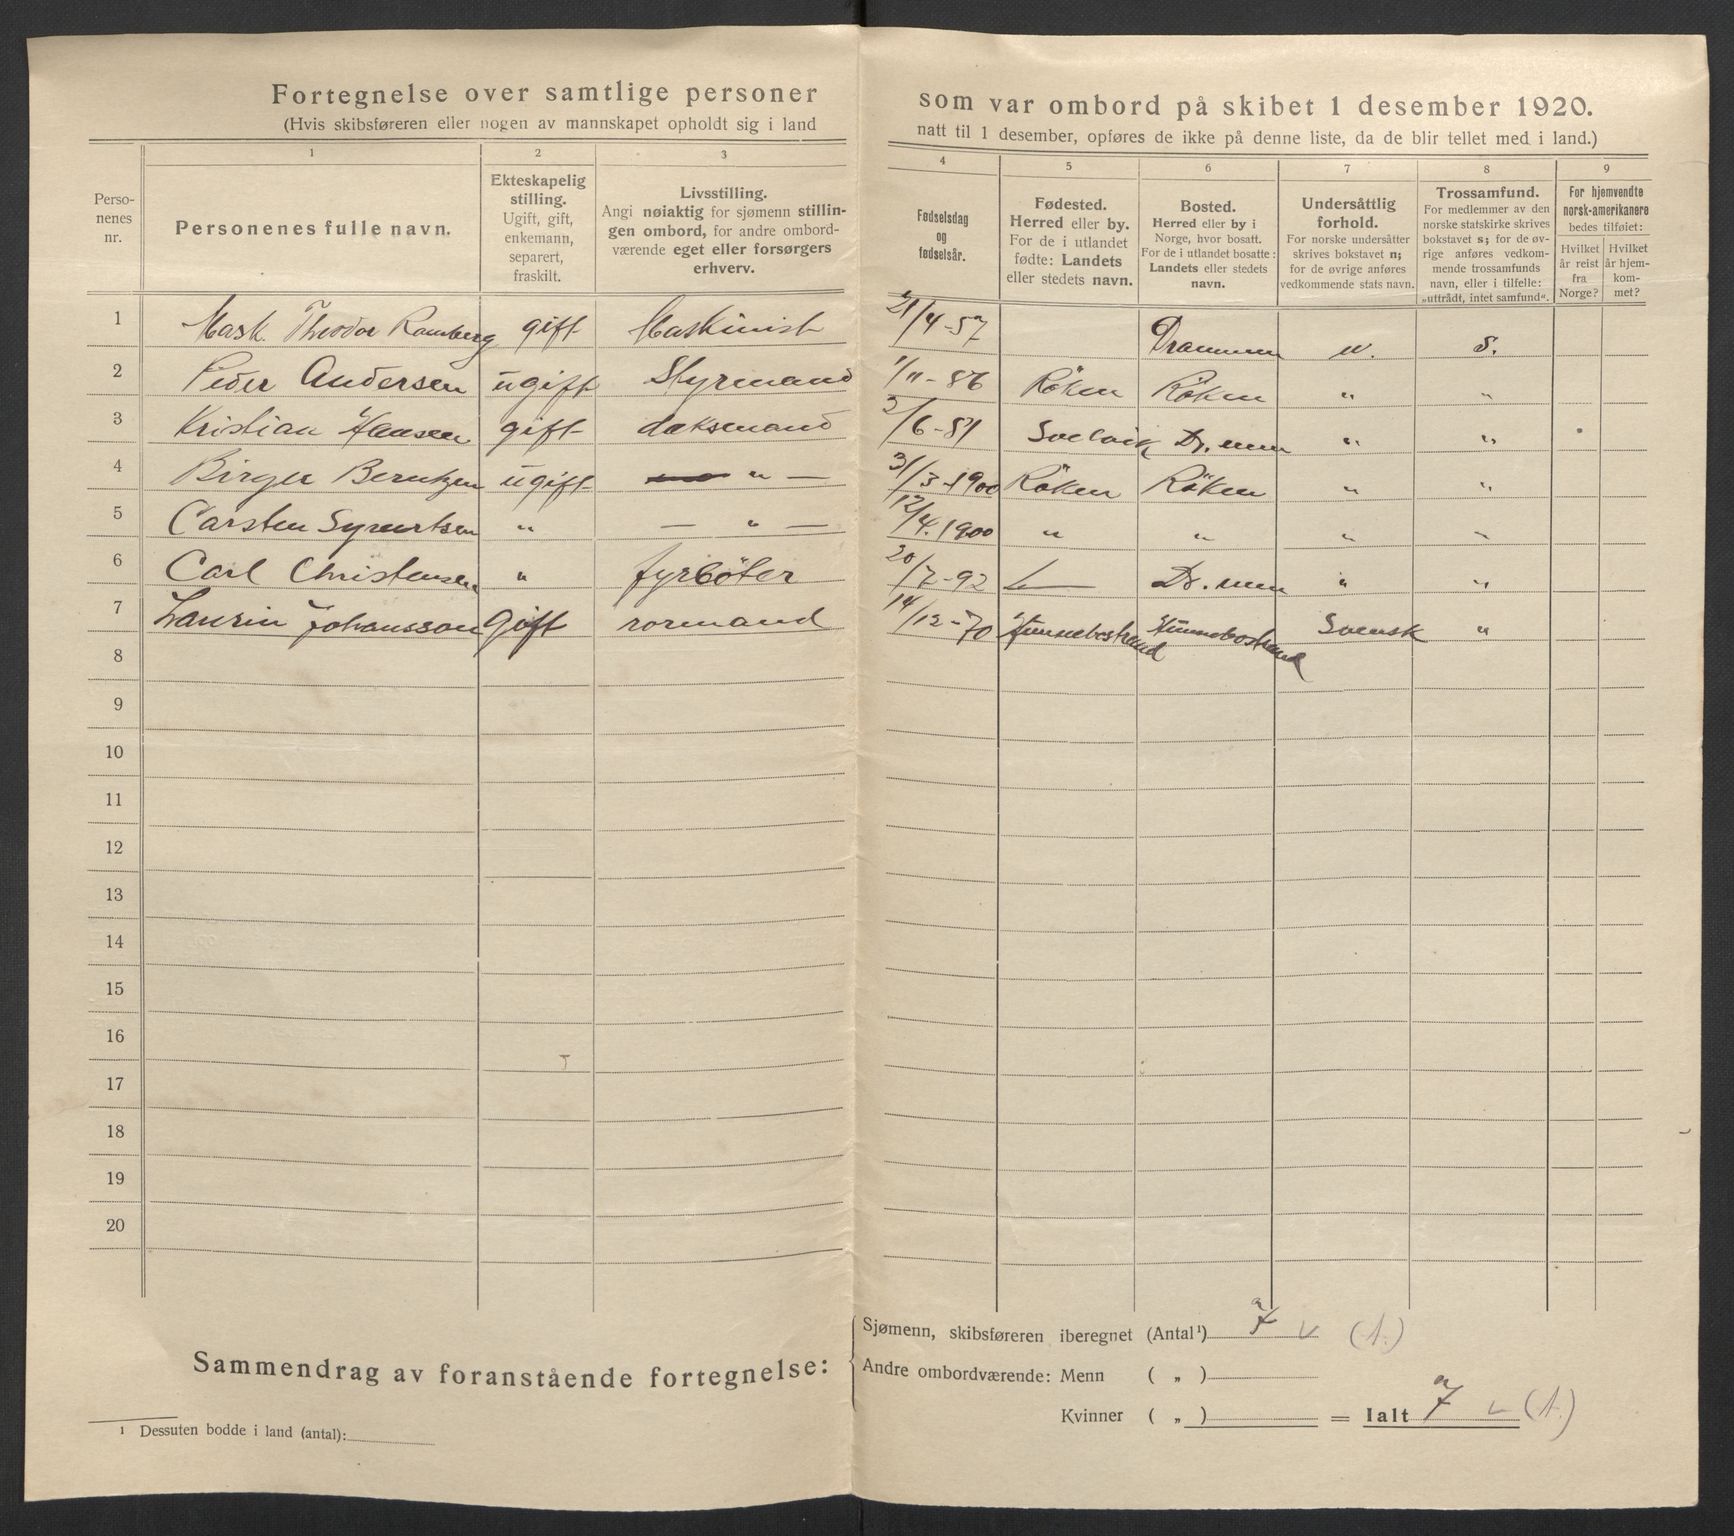 Fortegnelse over samtlige personer som var ombord på skibet 1 desember 1920.
(Hvis skibsføreren eller nogen av mannskapet opholdt sig i land natt til 1 desember, opføres de ikke på denne liste, da de blir tellet med i land.)
1 2 3 4 5 6 7 8 9
Perso-
nenes
nr.
Personenes fulle navn.
Ekteskapelig
stilling.
Ugift, gift,
enkemann,
separert,
fraskilt.
Livsstilling.
Angi nøiaktig for sjømenn stillin-
gen ombord, for andre ombord-
værende eget eller forsørgers
erhverv.
Fødselsdag
og
fødselsår.
Fødested.
Herred eller by.
For de i utlandet
fødte: Landets
eller stedets navn.
Bosted.
Herred eller by i
Norge, hvor bosatt.
For de i utlandet bosatte:
Landets eller stedets
navn.
Undersåttlig
forhold.
For norske undersåtter
skrives bokstavet n;
for de øvrige anføres
vedkommende stats navn.
Trossamfund.
For medlemmer av den
norske statskirke skrives
bokstavet s; for de øv-
rige anføres vedkom-
mende trossamfunds
navn, eller i tilfelle:
„uttrådt, intet samfund“.
For hjemvendte
norsk-amerikanere
bedes tilføiet:
Hvilket
år reist
fra
Norge?
Hvilket
år hjem-
kom-
met?
1 Mask. Theodor Ramberg gift Maskinist 21/4-57 Drammen n. s.
2 Peder Andersen ugift Styrmand 1/11-86 Röken Röken " "
3 Kristian Hansen gift dæksmand 2/6-81 Svelvik Dr.men " "
4 Birger Berntzen ugift " — 31/3-1900 Röken Röken " "
5 Carsten Syvertsen " — " — 12/4.1900 " " " "
6 Carl Christensen " fyrböter 20/7-92 Dr.men " "
7 Laurin Johansson Gift rormand 14/12-70 Hunnebostrand Hunnebostrand Svensk "
8
9
10
11
12
13
14
15
16
17
18
19
20
Sammendrag av foranstående fortegnelse:
Sjømenn, skibsføreren iberegnet (Antal¹) 7 v (1.)
Andre ombordværende: Menn ( „ )
Kvinner ( „ ) = Ialt 7 v (1.)
¹ Dessuten bodde i land (antal):